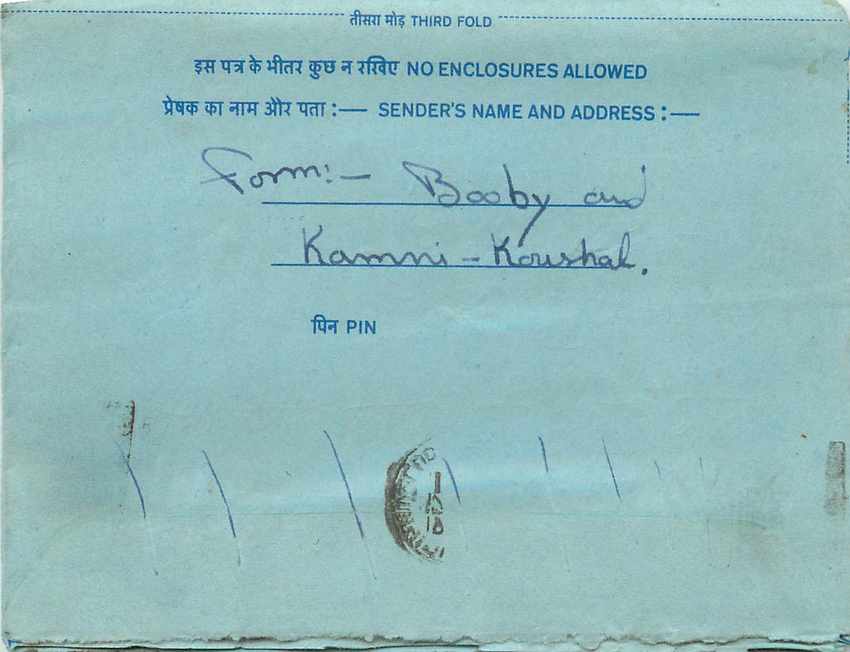 तीसरा मोड़ THIRD FOLD
इस पत्र के भीतर कुछ न रखिए NO ENCLOSURES ALLOWED
प्रेषक का नाम और पता :— SENDER'S NAME AND ADDRESS :—
Form:- Booby and
Kamni - Koushal.
पिन PIN